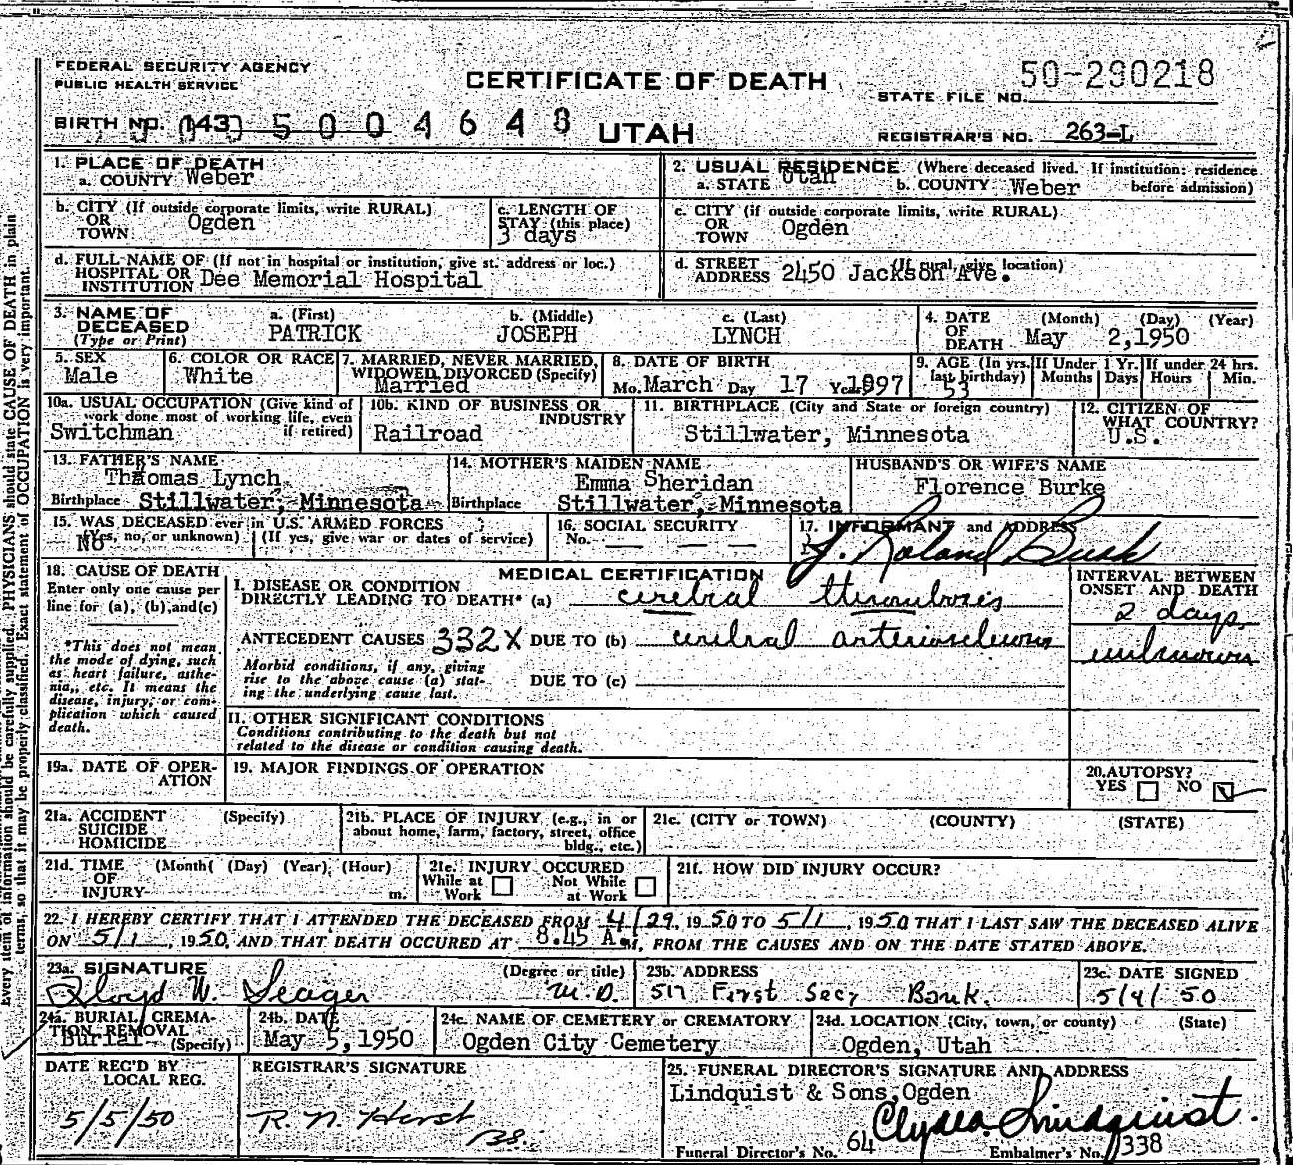 FEDERAL SECURITY AGENCY
PUBLIC HEALTH SERVICE
CERTIFICATE OF DEATH
UTAH
STATE FILE NO. 50-290218
BIRTH NO. 143
REGISTRAR'S NO. 263-L
1. PLACE OF DEATH
a. COUNTY Weber
b. CITY (If outside corporate limits, write RURAL)
OR
TOWN Ogden
c. LENGTH OF
STAY (this place)
3 days
d. FULL NAME OF (If not in hospital or institution, give st. address or loc.)
HOSPITAL OR
INSTITUTION Dee Memorial Hospital
2. USUAL RESIDENCE (Where deceased lived. If institution: residence
before admission)
a. STATE Utah b. COUNTY Weber
c. CITY (if outside corporate limits, write RURAL)
OR
TOWN Ogden
d. STREET (If rural, give location)
ADDRESS 2450 Jackson Ave.
3. NAME OF
DECEASED
(Type or Print)
a. (First) b. (Middle) c. (Last)
PATRICK JOSEPH LYNCH
4. DATE (Month) (Day) (Year)
OF
DEATH May 2,1950
5. SEX
Male
6. COLOR OR RACE
White
7. MARRIED, NEVER MARRIED,
WIDOWED, DIVORCED (Specify)
Married
8. DATE OF BIRTH
Mo. March Day 17 Year
9. AGE (In yrs. last birthday)
53
If Under 1 Yr.
Months Days
If under 24 hrs.
Hours Min.
10a. USUAL OCCUPATION (Give kind of
work done most of working life, even
if retired)
Switchman
10b. KIND OF BUSINESS OR
INDUSTRY
Railroad
11. BIRTHPLACE (City and State or foreign country)
Stillwater, Minnesota
12. CITIZEN OF
WHAT COUNTRY?
U.S.
13. FATHER'S NAME
Thomas Lynch
Birthplace Stillwater, Minnesota
14. MOTHER'S MAIDEN NAME
Emma Sheridan
Birthplace Stillwater, Minnesota
HUSBAND'S OR WIFE'S NAME
Florence Burke
15. WAS DECEASED ever in U.S. ARMED FORCES
(Yes, no, or unknown) (If yes, give war or dates of service)
No
16. SOCIAL SECURITY
No.
17. INFORMANT and ADDRESS
J. Roland Bush
18. CAUSE OF DEATH
Enter only one cause per
line for (a), (b), and (c)
*This does not mean
the mode of dying, such
as heart failure, asthe-
nia, etc. It means the
disease, injury, or com-
plication which caused
death.
MEDICAL CERTIFICATION
I. DISEASE OR CONDITION
DIRECTLY LEADING TO DEATH* (a) cerebral thrombosis
ANTECEDENT CAUSES 332X DUE TO (b) cerebral arteriosclerosis
Morbid conditions, if any, giving
rise to the above cause (a) stat-
ing the underlying cause last.
DUE TO (c)
II. OTHER SIGNIFICANT CONDITIONS
Conditions contributing to the death but not
related to the disease or condition causing death.
INTERVAL BETWEEN
ONSET AND DEATH
2 days
unknown
19a. DATE OF OPER-
ATION
19. MAJOR FINDINGS OF OPERATION
20. AUTOPSY?
YES NO
21a. ACCIDENT (Specify)
SUICIDE
HOMICIDE
21b. PLACE OF INJURY (e.g., in or
about home, farm, factory, street, office
bldg., etc.)
21c. (CITY or TOWN) (COUNTY) (STATE)
21d. TIME (Month) (Day) (Year) (Hour)
OF
INJURY m.
21e. INJURY OCCURED
While at Work Not While at Work
21f. HOW DID INJURY OCCUR?
22. I HEREBY CERTIFY THAT I ATTENDED THE DECEASED FROM 4/29, 1950 TO 5/1, 1950 THAT I LAST SAW THE DECEASED ALIVE
ON 5/1, 1950, AND THAT DEATH OCCURED AT 8.45 A.M, FROM THE CAUSES AND ON THE DATE STATED ABOVE.
23a. SIGNATURE (Degree or title)
Floyd W. Seager M.D.
23b. ADDRESS
517 First Secy Bank.
23c. DATE SIGNED
5/4/50
24a. BURIAL, CREMA-
TION, REMOVAL
Burial (Specify)
24b. DATE
May 5, 1950
24c. NAME OF CEMETERY or CREMATORY
Ogden City Cemetery
24d. LOCATION (City, town, or county) (State)
Ogden, Utah
DATE REC'D BY
LOCAL REG.
5/5/50
REGISTRAR'S SIGNATURE
R. N. Hirst
25. FUNERAL DIRECTOR'S SIGNATURE AND ADDRESS
Lindquist & Sons, Ogden
Clyde Lindquist.
Funeral Director's No. 64 Embalmer's No. 338
Every item of information should be carefully supplied. PHYSICIANS should state CAUSE OF DEATH in plain
terms, so that it may be properly classified. Exact statement of OCCUPATION is very important.